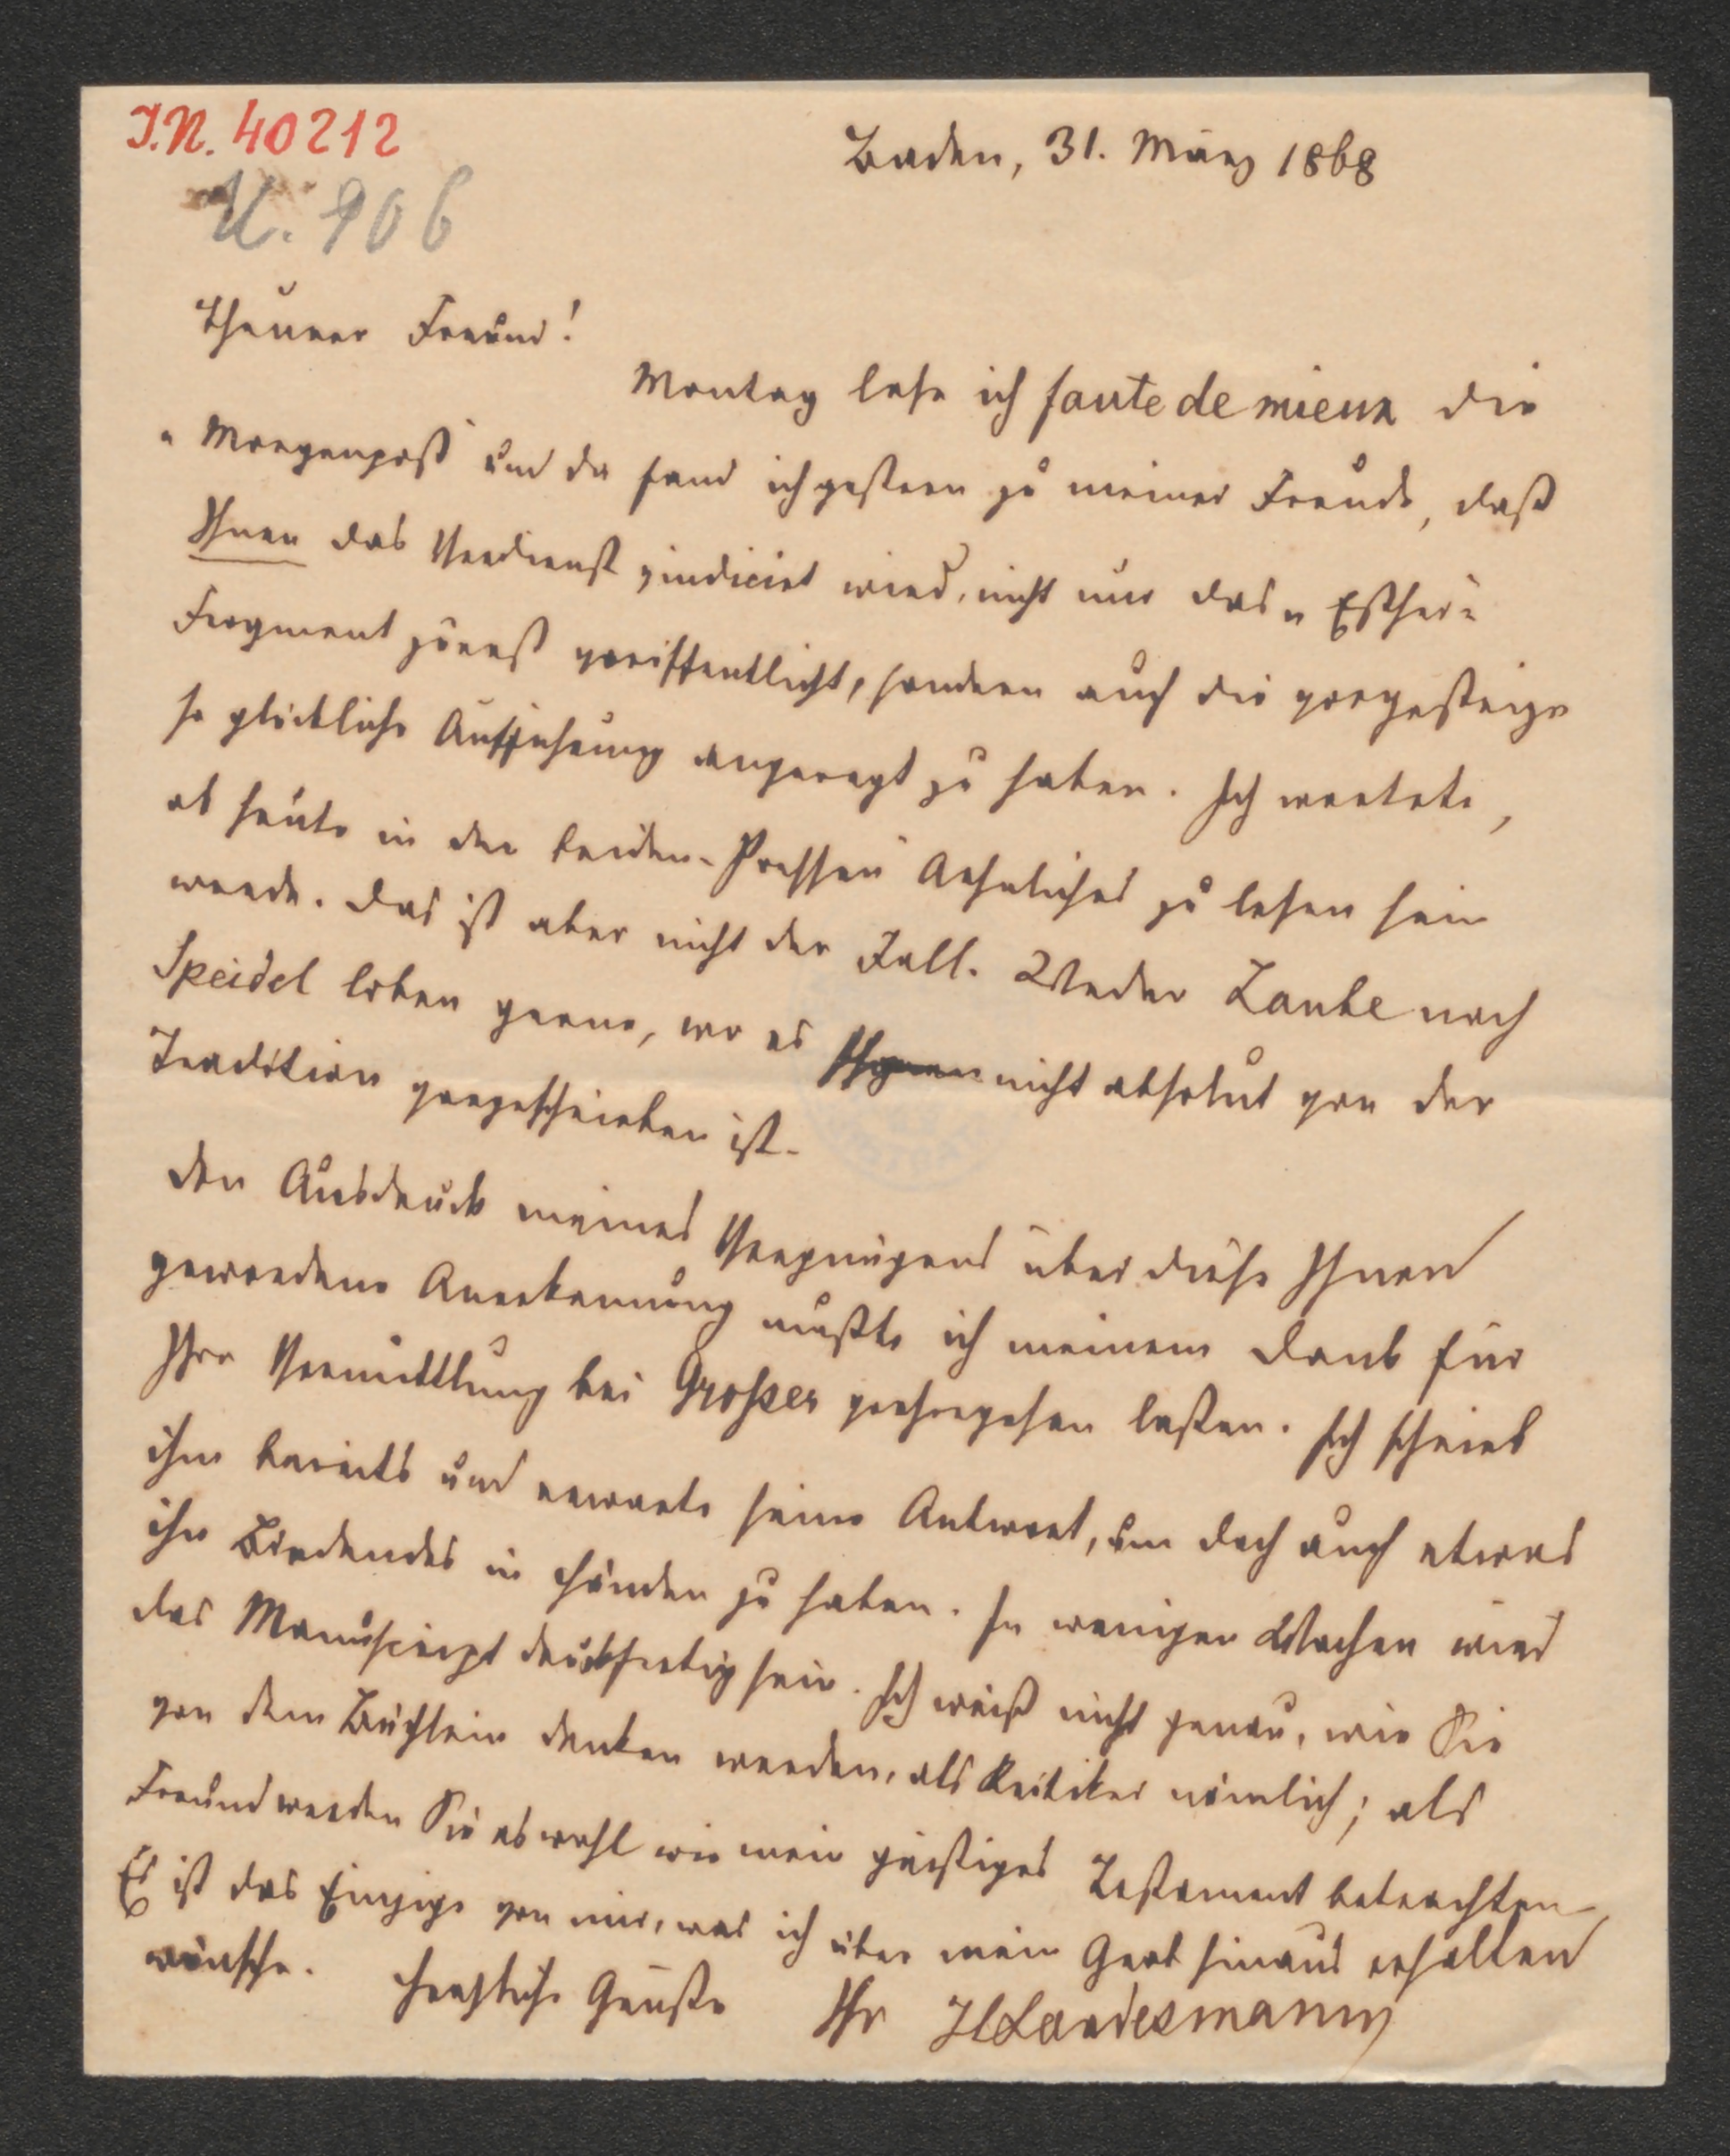 I.N. 40212
Baden, 31. März 1868
K. 906
Theurer Freund!
Montag lese ich faute de mieux die
„Morgenpost" und da fand ich gestern zu meiner Freude, daß
Ihnen das Verdienst vindicirt wird, nicht nur das „Esther"-
Fragment zuerst veröffentlicht, sondern auch die vorgestrige
so glückliche Aufführung angeregt zu haben. Ich wartete,
ob heute in den beiden „Pressen" Aehnliches zu lesen sein
werde. Das ist aber nicht der Fall. Weder Laube noch
Speidel loben gerne, wo es nicht absolut von der
Tradition vorgeschrieben ist.
Den Ausdruck meines Vergnügens über diese Ihnen
gewordene Anerkennung mußte ich meinem Dank für
Ihre Vermittlung bei Grosser vorhergehen laßen. Ich schrieb
ihm bereits und erwarte seine Antwort, um doch auch etwas
ihn Bindendes in Händen zu haben. In wenigen Wochen wird
das Manuscript druckfertig sein. Ich weiß nicht genau, wie Sie
von dem Büchlein denken werden, als Kritiker nämlich; als
Freund werden Sie es wohl wie mein geistiges Testament betrachten.
Es ist das Einzige von mir, was ich über mein Grab hinaus erhalten
wünsche. Herzliche Grüße Ihr HLandesmann